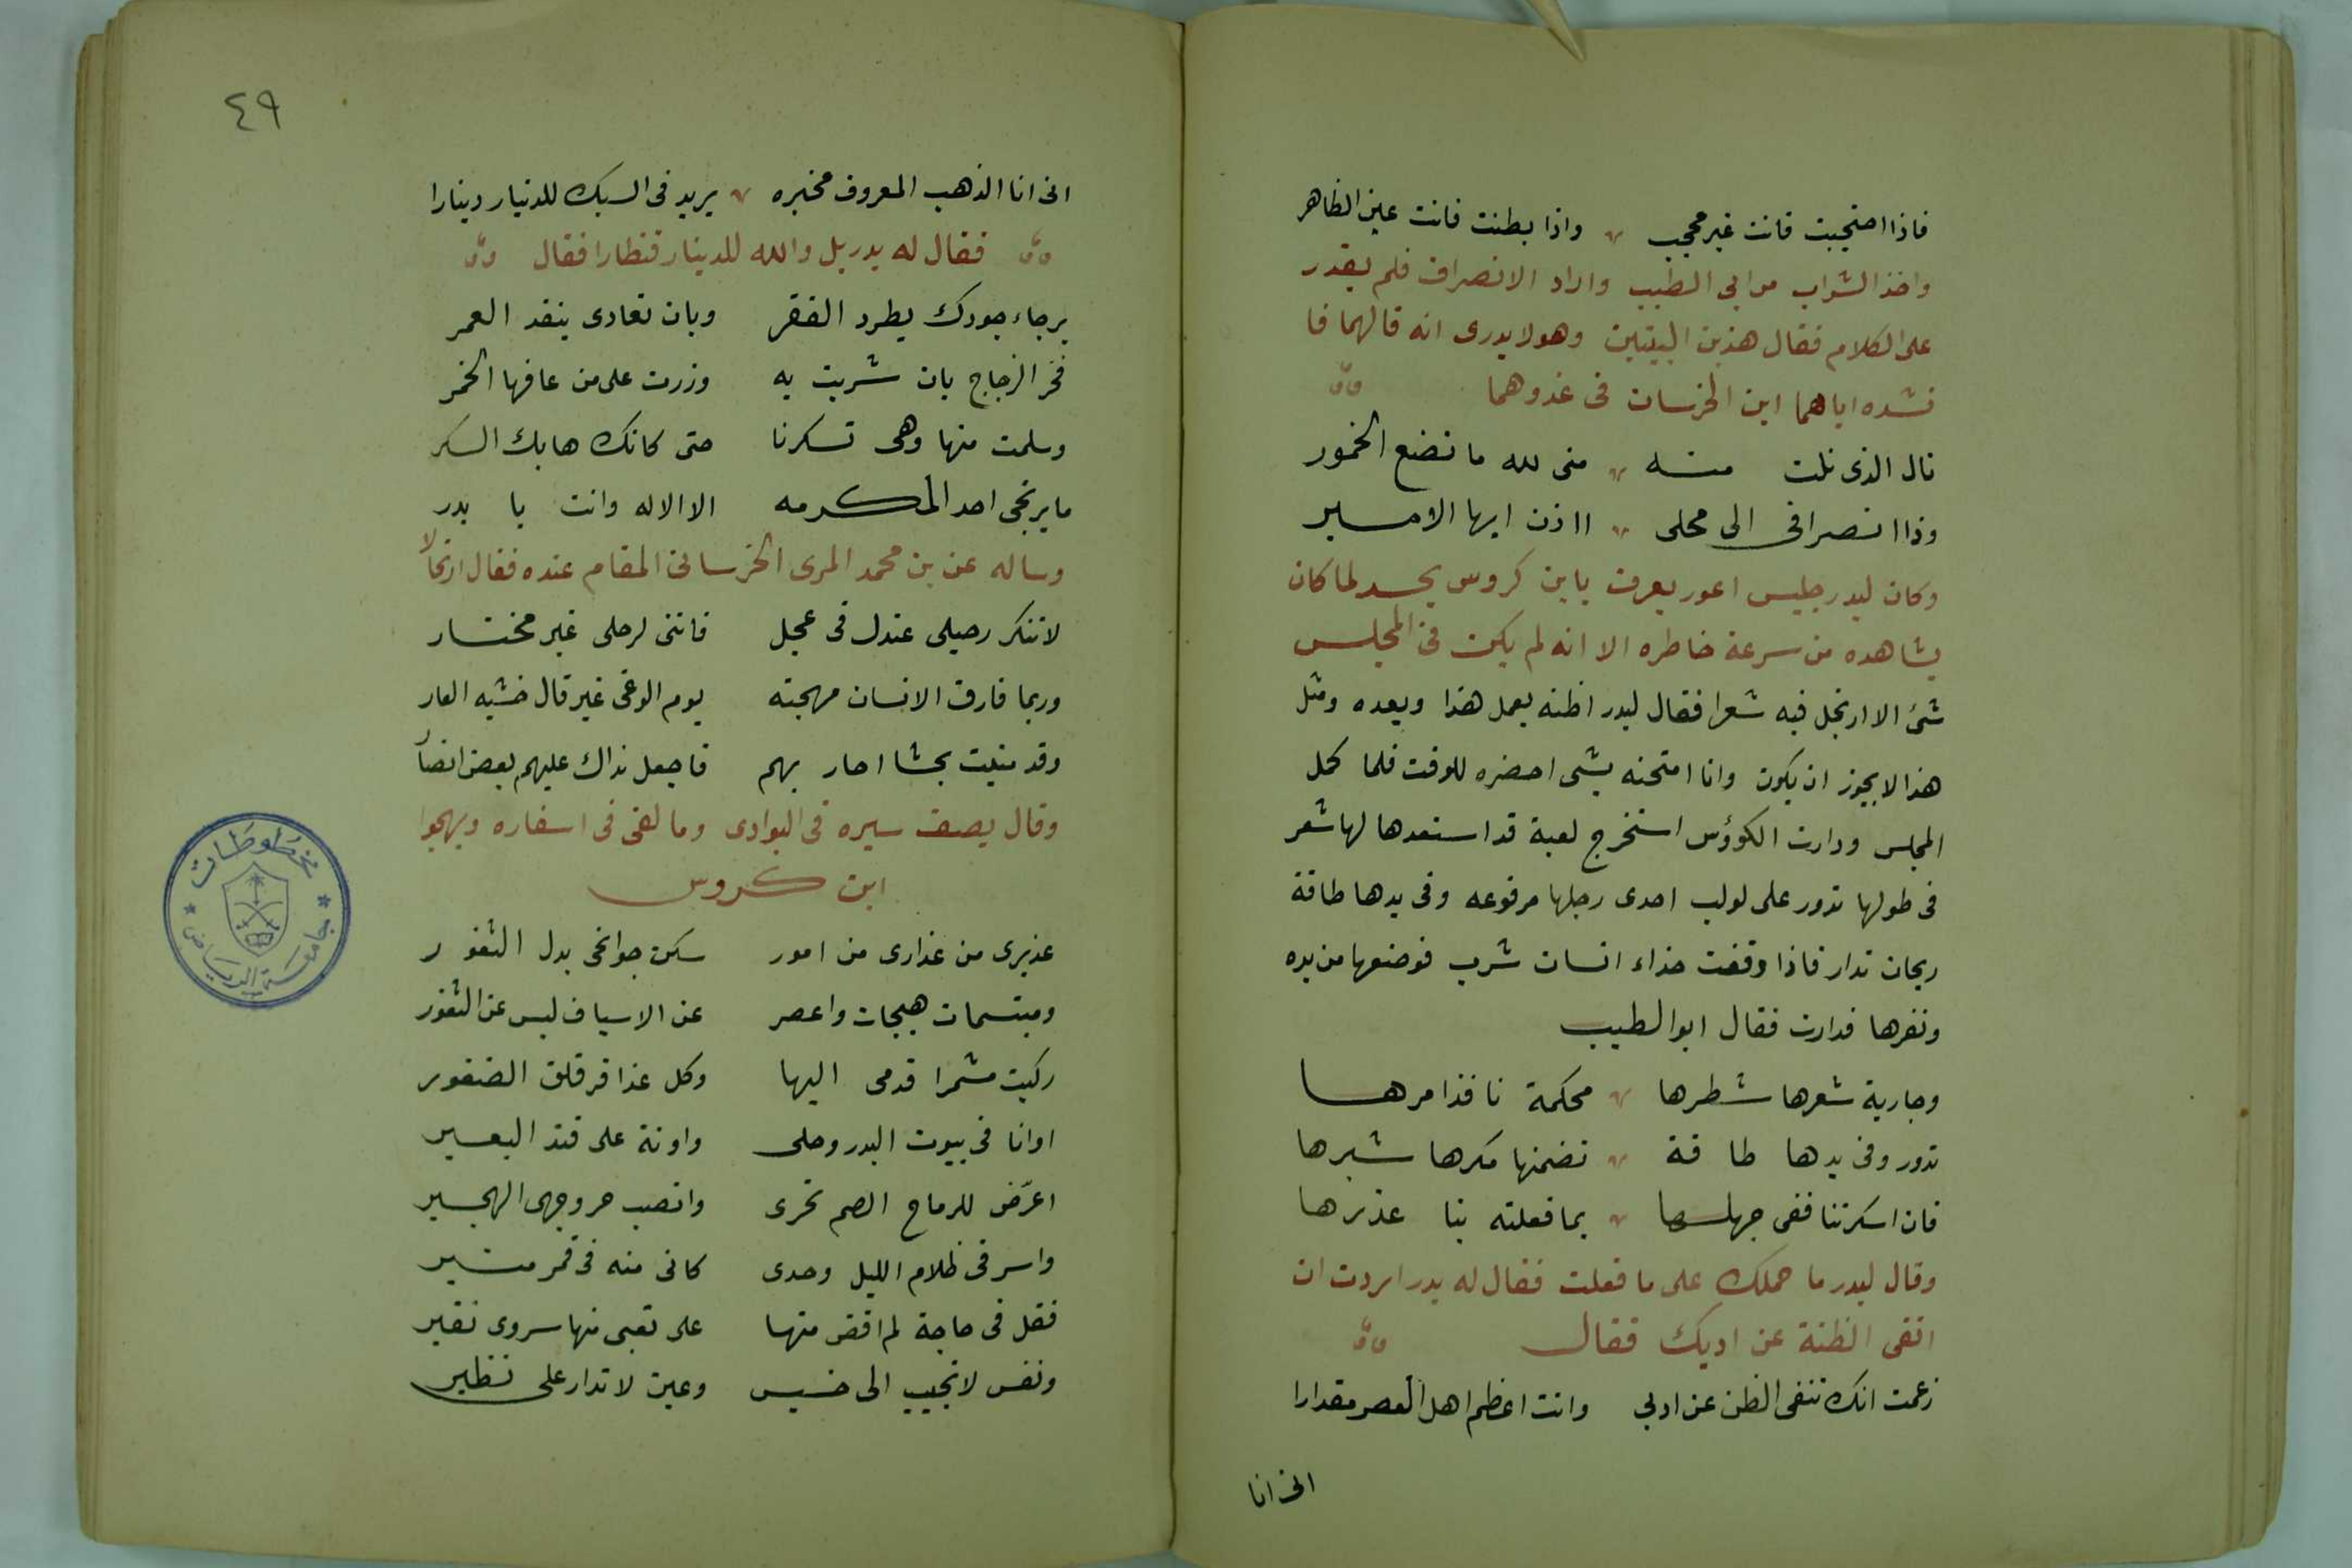 فاذا احتجبت فانت غير محجب واذا بطنت فانت عين الظاهر
واخذ الشراب من ابي الطيب واراد الانصراف فلم يقدر
على الكلام فقال هذين البيتين وهو لا يدرى انه قالهما فا
نشده اياهما ابن الخرسان فى غدوهما
نال الذى نلت منه منى لله ما تضع الخمور
وذا انصرافى الى محلى ااذن ايها الامير
وكان لبدر جليس اعور يعرف بابن كروس يحسد لما كان
يشاهده من سرعة خاطره الا انه لم يكن فى المجلس
شئ الا ارتجل فيه شعرا فقال لبدر اظنه يعمل هذا ويعده ومثل
هذا لا يجوز ان يكون وانا امتحنه بشى احضره للوقت فلما كمل
المجلس ودارت الكوؤس استخرج لعبة قد استعدها لها شعر
فى طولها تدور على لولب احدى رجلها مرفوعه وفى يدها طاقة
ريحان تدار فاذا وقفت حذاء انسان شرب فوضعها من يده
ونقرها فدارت فقال ابو الطيب
وجارية شعرها شطرها محكمة نافذ امرها
تدور وفى يدها طاقة تضمنها مكرها شبرها
فان اسكرتنا ففى جهلها بما فعلته بنا عذرها
وقال لبدر ما حملك على ما فعلت فقال له بدر اردت ان
انفى الظنة عن اديك فقال
زعمت انك تنفى الظن عن ادبى وانت اعظم اهل العصر مقدارا
انى انا
٤٩
انى انا الذهب المعروف مخبره يريد فى السبك للدنيار دينارا
فقال له بدر بل والله للدينار قنطارا فقال
برجاء جودك يطرد الفقر وبان تعادى ينفد العمر
فخر الزجاج بان شربت به وزرت على من عافها الخمر
وسلمت منها وهى تسكرنا حتى كانك هابك السكر
ما يرتجى احد لمكرمه الا الاله وانت يا بدر
وساله عن بن محمد المرى الخرسانى المقام عنده فقال ارتجالا
لا تنكر رحيلى عندك فى عجل فاننى لرحلى غير مختار
وربما فارق الانسان مهجته يوم الوغى غير قال خشيه العار
وقد منيت بحشا احار بهم فاجعل نداك عليهم بعض انصار
وقال يصف سيره فى البوادى وما لقى فى اسفاره ويهجوا
ابن كروس
عذيرى من عذارى من امور سكن جوانحى بدل الثغور
ومبتسمات هيجات واعصر عن الاسياف ليس عن الثغور
ركبت مشمرا قدمى اليها وكل عذافر قلق الضفور
اوانا فى بيوت البدر وحلى واونة على قتد البعير
اعرّض للرماح الصم نحرى وانصب حر وجهى الهجير
واسر فى ظلام الليل وحدى كانى منه فى قمر منير
فقل فى حاجة لم اقض منها على تعبى منها سروى نقير
ونفس لا تجيب الى خسيس وعين لا تدار على نظير
مخطوطات
جامعة الرياض